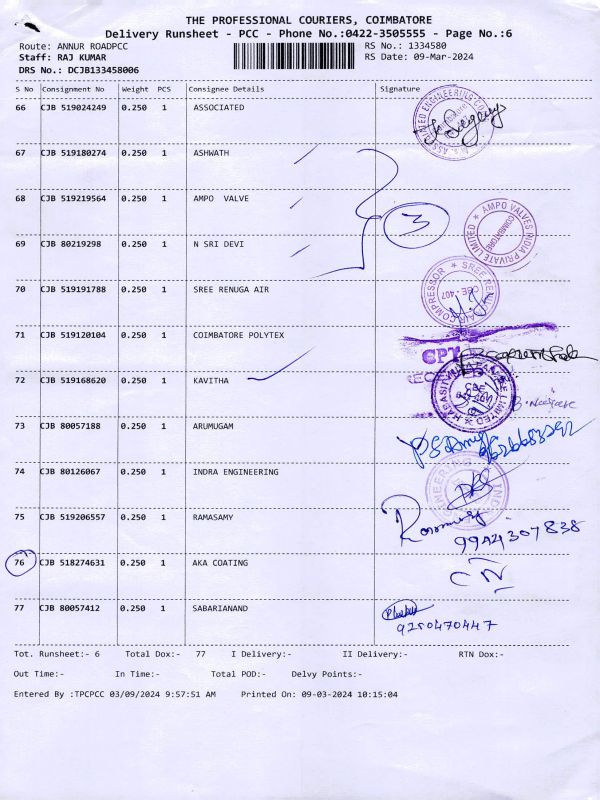 THE PROFESSIONAL COURIERS, COIMBATORE
Delivery Runsheet - PCC - Phone No.:0422-3505555 - Page No.:6
Route: ANNUR ROADPCC RS No.: 1334580
Staff: RAJ KUMAR RS Date: 09-Mar-2024
DRS No.: DCJB133458006
S No Consignment No Weight PCS Consignee Details Signature
66 CJB 519024249 0.250 1 ASSOCIATED
67 CJB 519180274 0.250 1 ASHWATH
68 CJB 519219564 0.250 1 AMPO VALVE
3
AMPO VALVES INDIA PRIVATE LIMITED
COIMBATORE
69 CJB 80219298 0.250 1 N SRI DEVI
70 CJB 519191788 0.250 1 SREE RENUGA AIR
71 CJB 519120104 0.250 1 COIMBATORE POLYTEX
CPT
72 CJB 519168620 0.250 1 KAVITHA
73 CJB 80057188 0.250 1 ARUMUGAM
74 CJB 80126067 0.250 1 INDRA ENGINEERING
75 CJB 519206557 0.250 1 RAMASAMY
9944307838
76 CJB 518274631 0.250 1 AKA COATING
77 CJB 80057412 0.250 1 SABARIANAND
9250470447
Tot. Runsheet:- 6 Total Dox:- 77 I Delivery:- II Delivery:- RTN Dox:-
Out Time:- In Time:- Total POD:- Delvy Points:-
Entered By :TPCPCC 03/09/2024 9:57:51 AM Printed On: 09-03-2024 10:15:04